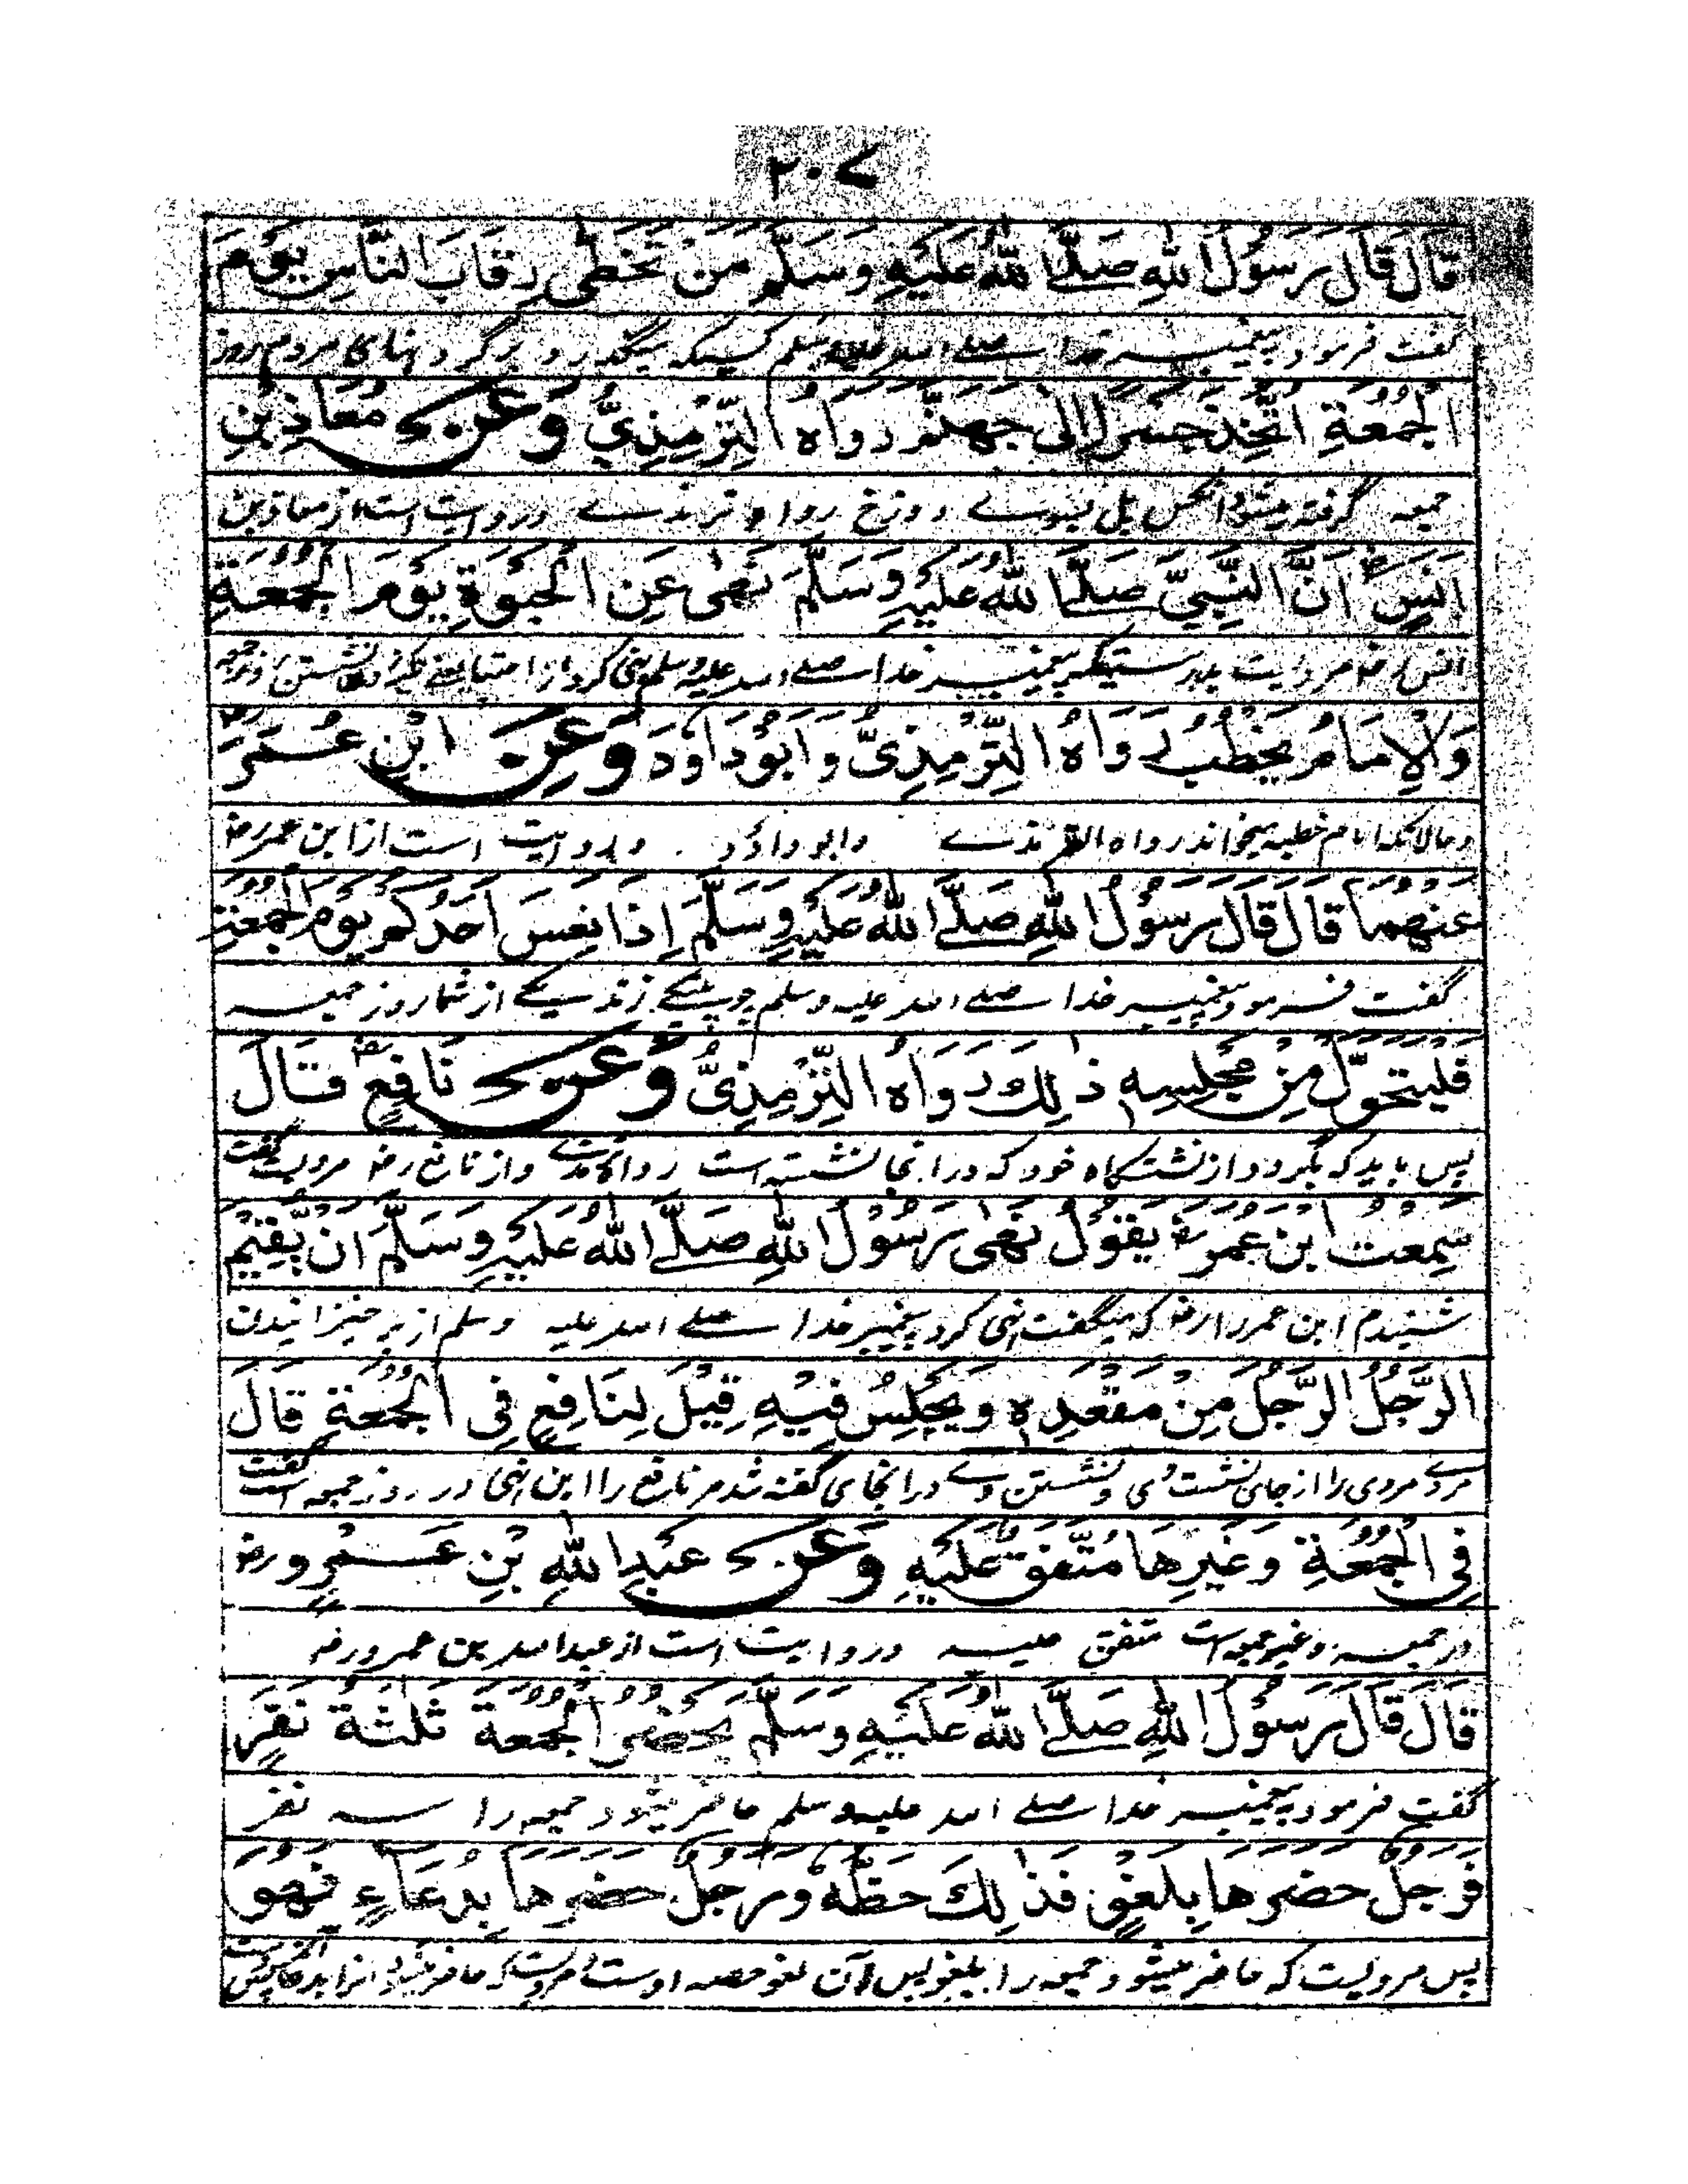 ۲۰۷
قَالَ قَالَ رَسُوْلُ اللهِ صَلَّے اللهُ عَلَيْهِ وَسَلَّمَ مَنْ تَخَطّٰى رِقَابَ النَّاسِ يَوْمَ
گفت فرمود پیغمبر خدا صلے اللہ علیہ وسلم کسیکہ میگذرد بر گردنہای مردم روز
الْجُمُعَةِ اتُّخِذَ جَسْرًا اِلٰى جَهَنَّمَ رَوَاهُ التِّرْمِذِيُّ وَعَنْ مُعَاذِ بْنِ
جمعہ گرفتہ میشود آنکس پل بسوے دوزخ رواہ ترمذے و روایت است از معاذ بن
اَنَسٍ رض اَنَّ النَّبِيَّ صَلَّے اللهُ عَلَيْهِ وَسَلَّمَ نَهٰى عَنِ الْحَبْوَةِ يَوْمَ الْجُمُعَةِ
انس رضہ مرویست بدرستیکہ پیغمبر خدا صلے اللہ علیہ وسلم نہی کرد از احتبا یعنے
وَالْاِمَامُ يَخْطُبُ رَوَاهُ التِّرْمِذِيُّ وَاَبُوْدَاوٗدَ وَعَنْ ابْنِ عُمَرَ رض
و حالانکہ امام خطبہ میخواند رواہ الترمذے وابوداؤد و روایت است از ابن عمر رضہ
عَنْهُمَا قَالَ قَالَ رَسُوْلُ اللهِ صَلَّے اللهُ عَلَيْهِ وَسَلَّمَ اِذَا نَعِسَ اَحَدُكُمْ يَوْمَ الْجُمُعَةِ
گفت فرمود پیغمبر خدا صلے اللہ علیہ وسلم چو پینکے زند یکے از شما روز جمعہ
فَلْيَتَحَوَّلْ مِنْ مَجْلِسِهٖ ذٰلِكَ رَوَاهُ التِّرْمِذِيُّ وَعَنْ نَافِعٍ رض قَالَ
پس باید کہ بگردد از نشستگاہ خود کہ در انجا نشستہ است و از نافع رضہ مرویست گفت
سَمِعْتُ ابْنَ عُمَرَ رض يَقُوْلُ نَهٰى رَسُوْلُ اللهِ صَلَّے اللهُ عَلَيْهِ وَسَلَّمَ اَنْ يُّقِيْمَ
شنیدم ابن عمر را رضہ کہ میگفت نہی کرد پیغمبر خدا صلے اللہ علیہ وسلم از بر خیزانیدن
الرَّجُلُ الرَّجُلَ مِنْ مَقْعَدِهٖ وَيَجْلِسُ فِيْهِ قِيْلَ لِنَافِعٍ فِى الْجُمُعَةِ قَالَ
مردے مردی را از جای نشست وی و نشستن وے در انجای گفتہ شد مر نافع را این نہی در روز جمعہ است گفت
فِى الْجُمُعَةِ وَغَيْرِهَا مُتَّفَقٌ عَلَيْهِ وَعَنْ عَبْدِ اللهِ بْنِ عَمْرٍو رض
در جمعہ و غیر جمعہ است متفق علیہ و روایت است از عبد اللہ بن عمرو رضہ
قَالَ قَالَ رَسُوْلُ اللهِ صَلَّے اللهُ عَلَيْهِ وَسَلَّمَ يَحْضُرُ الْجُمُعَةَ ثَلٰثَةُ نَفَرٍ
گفت فرمود پیغمبر خدا صلے اللہ علیہ وسلم حاضر میشود جمعہ را سہ نفر
فَرَجُلٌ حَضَرَهَا بِلَغْوٍ فَذٰلِكَ حَظُّهٗ وَرَجُلٌ حَضَرَهَا بِدُعَاءٍ فَهُوَ
پس مردیست کہ حاضر میشود جمعہ را بلغو پس آن لغو حصہ اوست و مردیست کہ حاضر میشود